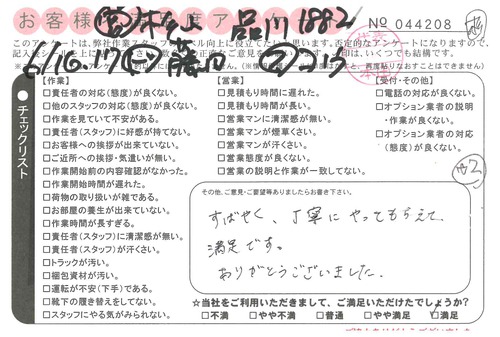 お客様
品川 1882
No 044208
【作業】
□責任者の対応(態度)が良くない。
□他のスタッフの対応(態度)が良くない。
□作業を見ていて不安がある。
□責任者(スタッフ)に好感が持てない。
□お客様への挨拶が出来ていない。
□ご近所への挨拶・気遣いが無い。
□作業開始前の内容確認がなかった。
□作業開始時間が遅れた。
□荷物の取り扱いが雑である。
□お部屋の養生が出来ていない。
□作業時間が長すぎる。
□責任者(スタッフ)に清潔感が無い。
□責任者(スタッフ)が汗くさい。
□トラックが汚い。
□梱包資材が汚い。
□運転が不安(下手)である。
□靴下の履き替えをしてない。
□スタッフにやる気がみられない。
【営業】
□見積もり時間に遅れた。
□見積もり時間が長い。
□営業マンに清潔感が無い。
□営業マンが煙草くさい。
□営業マンが汗くさい。
□営業態度が良くない。
□営業の説明と作業が一致してない。
【受付・その他】
□電話の対応が良くない。
□オプション業者の説明・作業が良くない。
□オプション業者の対応(態度)が良くない。
チェックリスト
その他、ご意見・ご要望等ありましたらお書き下さい。
すばやく、丁寧にやってもらえて
満足です。
ありがとうございました。
☆当社をご利用いただきまして、ご満足いただけたでしょうか?
□不満 □やや不満 □普通 □やや満足 ☑満足